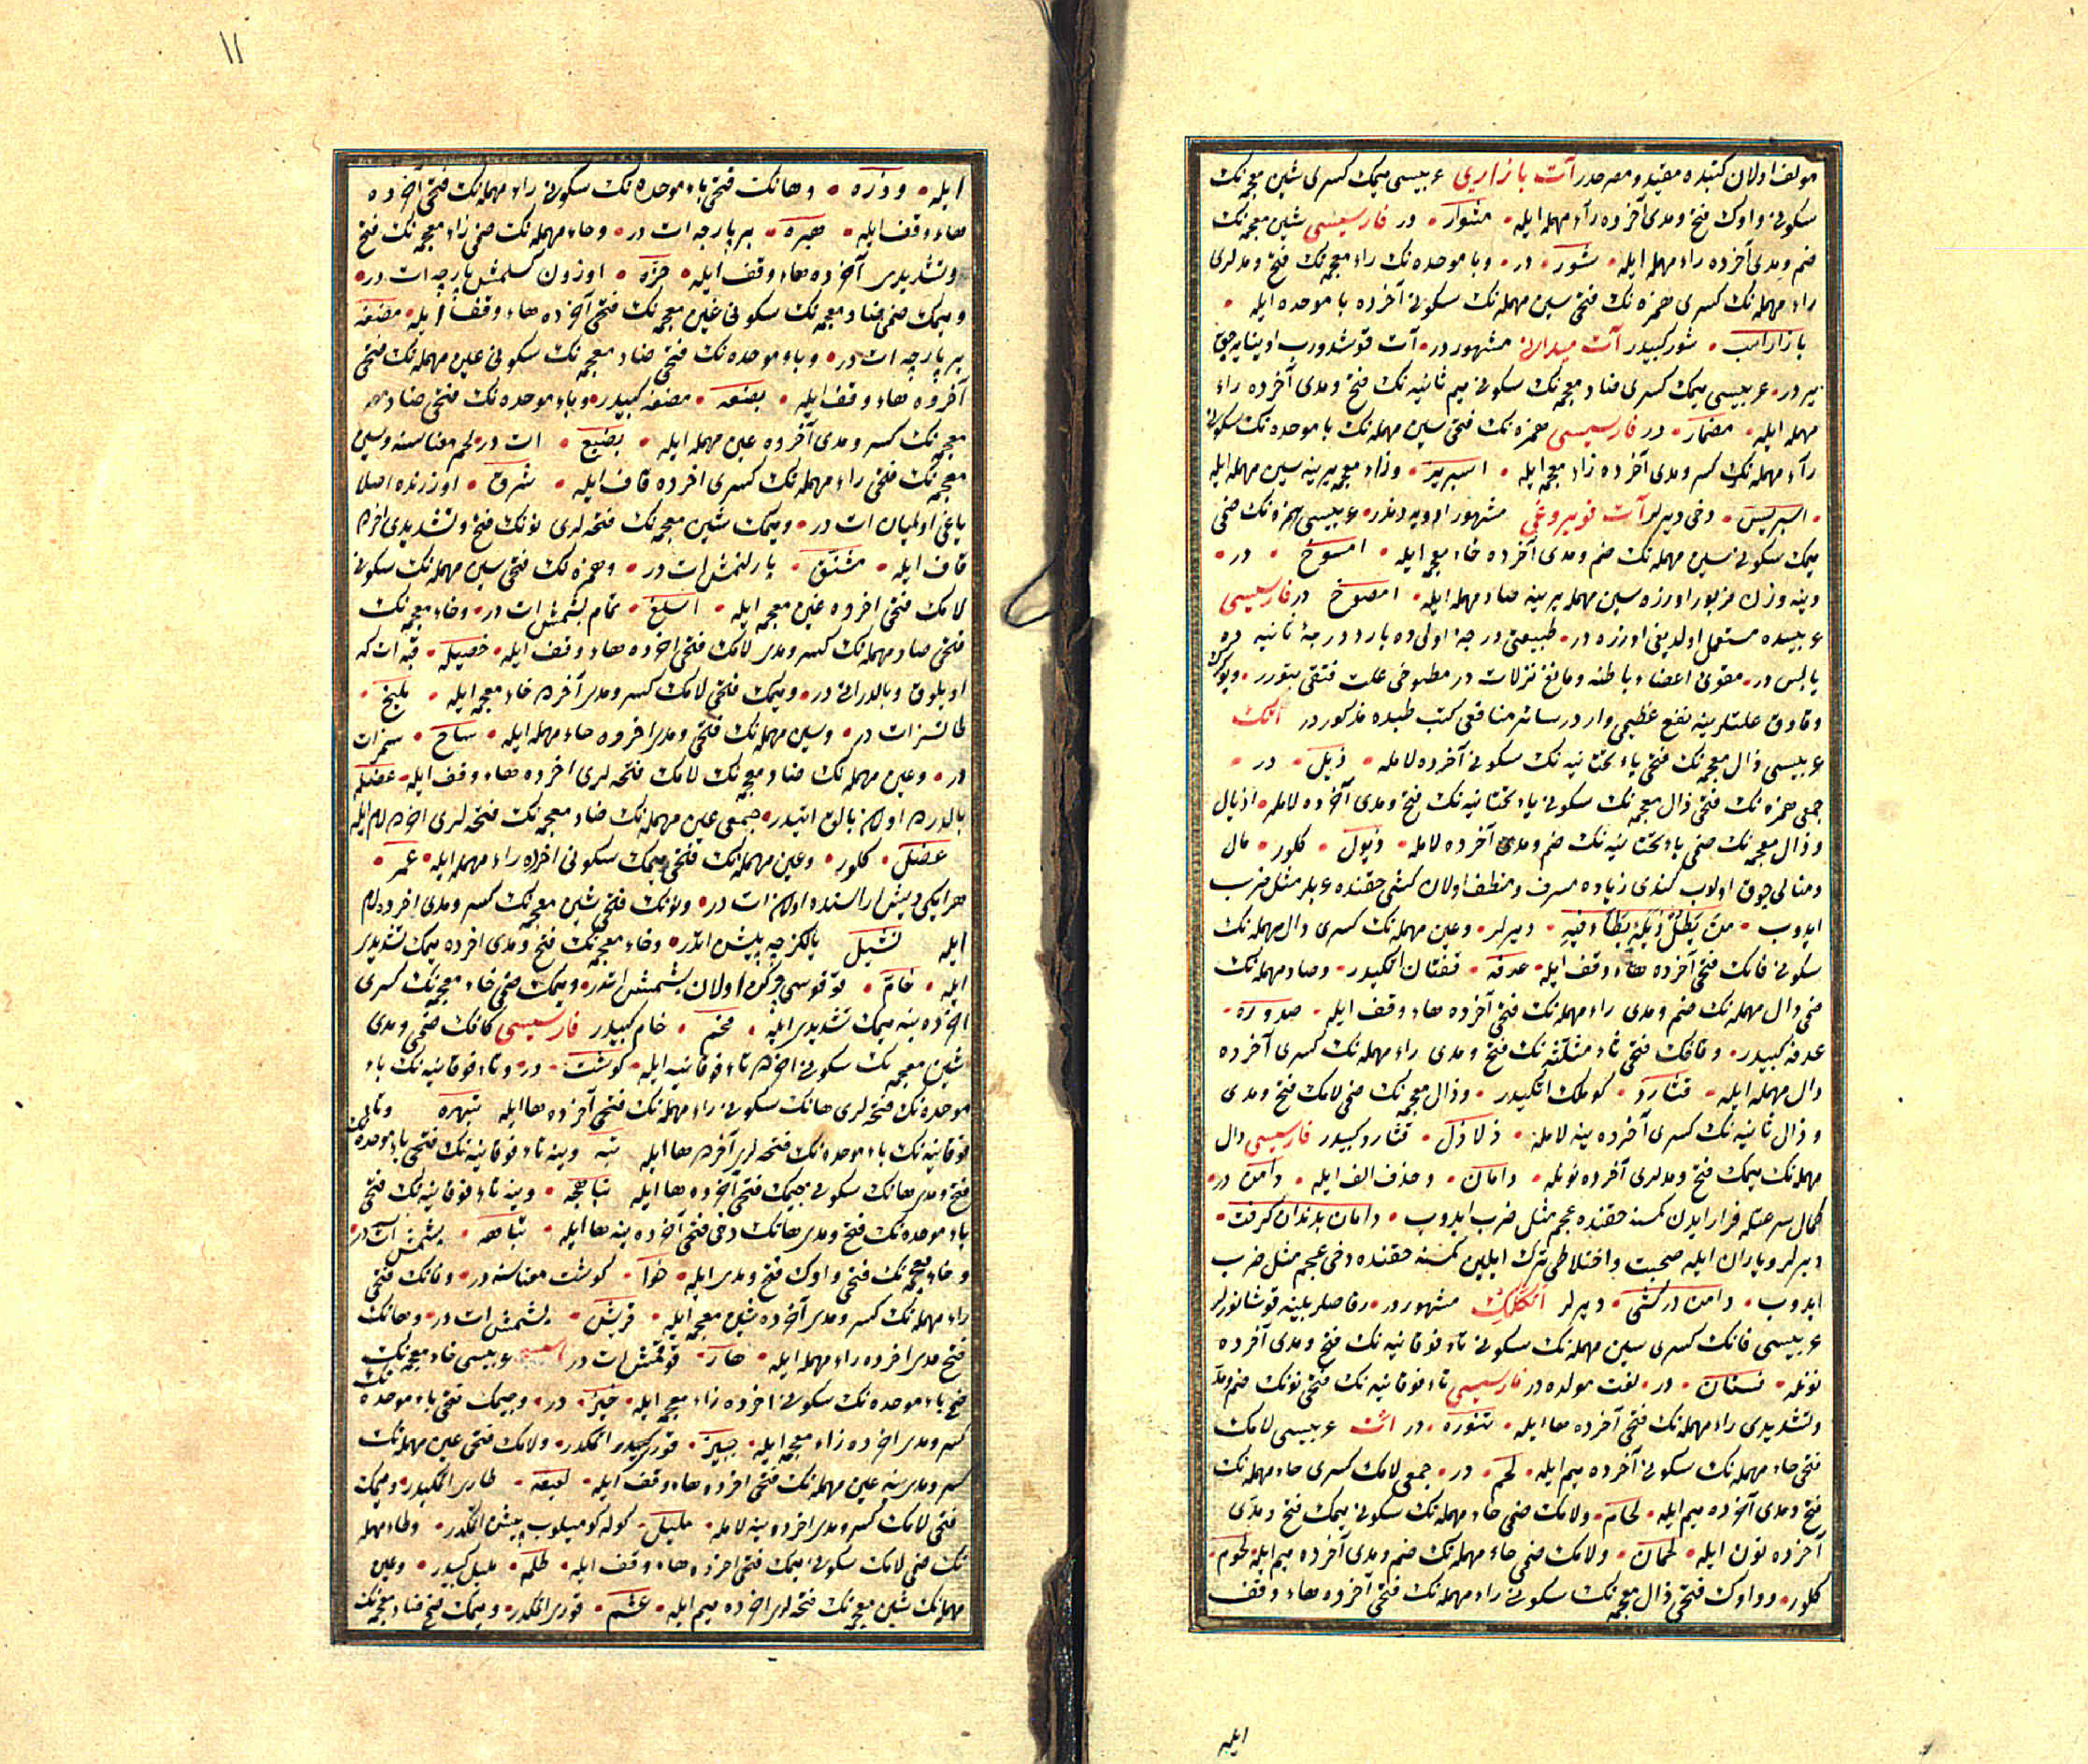 مولف اولان كتبده مقيد ومصرحدر آت بازاری عربيسی ميمك كسری شين معجمه نك
سكونی واوك فتح ومدی آخرده راء مهمله ايله مشوار در فارسيسی شين معجمه نك
ضم ومدی آخرده راء مهمله ايله شور در وبا موحده نك زاء معجمه نك فتح ومدلری
راء مهمله نك كسری همزه نك فتحی سين مهمله نك سكونی آخرده با موحده ايله
بازار اسب شور كبيدر آت ميدانی مشهور در آت قوشدورب اوينايه جق
ير در عربيسی ميمك كسری ضاد معجمه نك سكونی ميم ثانيه نك فتح ومدی آخرده راء
مهمله ايله مضمار در فارسيسی همزه نك فتحی سين مهمله نك با موحده نك سكونی
راء مهمله نك كسر ومدی آخرده زاء معجمه ايله اسبريز وزاء معجمه يرينه سين مهمله ايله
اسبريس دخی ديرلر آت قويروغی مشهور ادويه دندر عربيسی همزه نك ضمی
ميمك سكونی سين مهمله نك ضم ومدی آخرده خاء معجمه ايله امسوخ در
وينه وزن مزبور اوزره سين مهمله يرينه صاد مهمله ايله امصوخ در فارسيسی
عربيسده مستعمل اولديغی اوزره در طبيعتی درجهٔ اولی ده بارد درجهٔ ثانيه ده
يابس در مقوی اعضاء باطنه ومانع نزلات در مطبوخی علت فتقی بتورر
وقاوق علتلرينه نفع عظيمی وار در سائر منافعی كتب طبده مذكور در اتك
عربيسی ذال معجمه نك فتحی ياء تحتانيه نك سكونی آخرده لامله ذيل در
جمعی همزه نك فتحی ذال معجمه نك سكونی ياء تحتانيه نك فتح ومدی آخرده لامله اذيال
وذال معجمه نك ضمی ياء تحتانيه نك ضم ومدی آخرده لامله ذيول كلور مال
ومنالی چوق اولوب كندی زياده مسرف ومتلف اولان كشی حقنده عربلر مثل ضرب
ايدوب من يطل ذيله يطأ فيه ديرلر وعين مهمله نك كسری دال مهمله نك
سكونی فانك فتحی آخرده هاء وقف ايله عدفه قفتان اتكيدر وصاد مهمله نك
ضمی دال مهمله نك ضم ومدی راء مهمله نك فتحی آخرده هاء وقف ايله صدوره
عدفه كبيدر وقافك فتحی ثاء مثلثه نك فتح ومدی راء مهمله نك كسری آخرده
دال مهمله ايله قثارد كوملك اتكيدر وذال معجمه نك ضمی لامك فتح ومدی
وذال ثانيه نك كسری آخرده ينه لامله ذلاذل قثارد كبيدر فارسيسی دال
مهمله نك ميمك فتح ومدلری آخرده نونله دامان وحذف الف ايله دامن در
كمال سرعتله فرار ايدن كمسنه حقنده عجم مثل ضرب ايدوب دامان بدندان گرفت
ديرلر وياران ايله صحبت واختلاطی ترك ايلين كمسنه حقنده دخی عجم مثل ضرب
ايدوب دامن در كشی ديرلر اتكلك مشهور در رقاصلر بلينه قوشانورلر
عربيسی فانك كسری سين مهمله نك سكونی تاء فوقانيه نك فتح ومدی آخرده
نونله فستان در لغت مولده در فارسيسی تاء فوقانيه نك فتحی نونك ضم ومد
وتشديدی راء مهمله نك فتحی آخرده ها ايله تنوره در ات عربيسی لامك
فتحی حاء مهمله نك سكونی آخرده ميم ايله لحم در جمعی لامك كسری حاء مهمله نك
فتح ومدی آخرده ميم ايله لحام ولامك ضمی حاء مهمله نك سكونی ميمك فتح ومدی
آخرده نون ايله لحمان ولامك ضمی حاء مهمله نك ضم ومدی آخرده ميم ايله لحوم
كلور وواوك فتحی ذال معجمه نك سكونی راء مهمله نك فتحی آخرده هاء وقف
ايله
١١
ايله ووذره وهانك فتحی باء موحده نك سكونی راء مهمله نك فتحی آخرده
هاء وقف ايله هبره بر پارچه ات در وحاء مهمله نك ضمی زاء معجمه نك فتح
وتشديدی آخرده هاء وقف ايله حزه اوزون كسلمش پارچه ات در
وميمك ضمی ضاد معجمه نك سكونی غين معجمه نك فتحی آخرده هاء وقف ايله مضغه
بر پارچه ات در وباء موحده نك فتحی ضاد معجمه نك سكونی عين مهمله نك فتحی
آخرده هاء وقف ايله بضعه مضغه كبيدر وباء موحده نك فتحی ضاد
معجمه نك كسر ومدی آخرده عين مهمله ايله بضيع ات در لحم معناسنه وشين
معجمه نك فتحی راء مهمله نك كسری اخرده قاف ايله شرق اوزرنده اصلا
ياغی اولميان ات در وميمك شين معجمه نك فتحه لری نونك فتح وتشديدی اخرده
قاف ايله مشنق پارلنمش ات در وهمزه نك فتحی سين مهمله نك سكونی
لامك فتحی اخرده غين معجمه ايله اسلغ تمام بشمش ات در وخاء معجمه نك
فتحی صاد مهمله نك كسر ومدی لامك فتحی اخرده هاء وقف ايله خصيله قبه ات كه
اويلوق وبالدرانی در وميمك فتحی لامك كسر ومدی آخرده خاء معجمه ايله مليخ
طاتسز ات در وسين مهمله نك فتحی ومدی اخرده حاء مهمله ايله ساح سمز ات
در وعين مهمله نك ضاد معجمه نك لامك فتحه لری اخرده هاء وقف ايله عضله
بالدرده اولان بالق اتيدر جمعی عين مهمله نك ضاد معجمه نك فتحه لری اخرده لام ايله
عضل كلور وعين مهمله نك فتحی ميمك سكونی اخرده راء مهمله ايله عمر
هر ايكی ديش اراسنده اولان ات در ونونك فتحی شين معجمه نك كسر ومدی اخرده لام
ايله نشيل يالكزجه پيشن اتدر وخاء معجمه نك فتح ومدی اخرده ميمك تشديدی
ايله خام قوقوسی چركن اولان بشمش اتدر وميمك ضمی خاء معجمه نك كسری
اخرده ينه ميمك تشديدی ايله مخم خام كبيدر فارسيسی كافك ضمی ومدی
شين معجمه نك سكونی اخرده تاء فوقانيه ايله كوشت در وتاء فوقانيه نك باء
موحده نك فتحه لری هانك سكونی راء مهمله نك فتحی آخرده ها ايله تبهره وتاء
فوقانيه نك باء موحده نك فتحه لری آخرده ها ايله تبه وينه تاء فوقانيه نك فتحی باء موحده نك
فتح ومدی هانك سكونی جيمك فتحی آخرده ها ايله تباهجه وينه تاء فوقانيه نك فتحی
باء موحده نك فتح ومدی هانك دخی فتحی آخرده ينه ها ايله تباهه بشمش ات در
وخاء معجمه نك فتحی واوك فتح ومدی ايله خوا كوشت معناسنه در وفانك فتحی
راء مهمله نك كسر ومدی آخرده شين معجمه ايله فريش بشمش ات در وهانك
فتح ومدی اخرده راء مهمله ايله هار قوقمش ات در عربيسی خاء معجمه نك
فتح باء موحده نك سكونی اخرده زاء معجمه ايله خبز در وجيمك فتحی باء موحده نك
كسر ومدی اخرده زاء معجمه ايله جبيز قوری اتمكدر ولامك فتحی عين مهمله نك
كسر ومدی ينه عين مهمله نك فتحی اخرده هاء وقف ايله لعيعه طاری اتمكيدر وميمك
فتحی لامك كسر ومدی اخرده ينه لامله مليل كوله كوميلوب پيشن اتمكدر وطاء مهمله
نك ضمی لامك سكونی ميمك فتحی اخرده هاء وقف ايله طلمه مليل كبيدر وعين
مهمله نك شين معجمه نك فتحه لری اخرده ميم ايله عشم قوری اتمكدر وميمك فتح ضاد معجمه نك